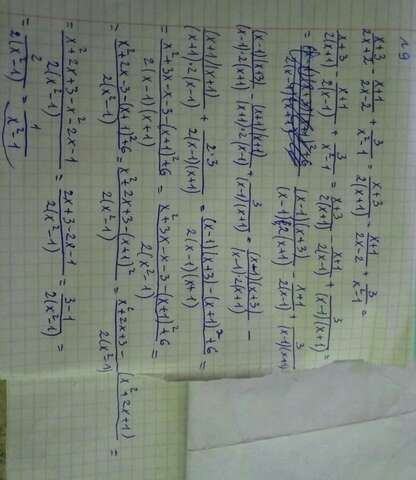 N9
x+3/2x+2 - x+1/2x-2 + 3/x²-1 = x+3/2(x+1) - x+1/2x-2 + 3/x²-1 =
x+3/2(x+1) - x+1/2(x-1) + 3/x²-1 = x+3/2(x+1) - x+1/2(x-1) + 3/(x-1)(x+1) =
= (x-1)(x+3)/(x-1)2(x+1) - x+1/2(x-1) + 3/(x-1)(x+1)
(x-1)(x+3)/(x-1)·2(x+1) - (x+1)(x+1)/(x+1)·2(x-1) + 3/(x-1)(x+1) = (x-1)(x+3)/(x-1)·2(x+1) -
(x+1)(x+1)/(x+1)·2(x-1) + 2·3/2(x-1)(x+1) = (x-1)(x+3)-(x+1)²+6/2(x-1)(x+1) =
= x²+3x-x-3-(x+1)²+6/2(x-1)(x+1) = x²+3x-x-3-(x+1)²+6/2(x²-1) =
= x²+2x-3-(x+1)²+6/2(x²-1) = x²+2x+3-(x+1)²/2(x²-1) = x²+2x+3-(x²+2x+1)/2(x²-1) =
= x²+2x+3-x²-2x-1/2(x²-1) = 2x+3-2x-1/2(x²-1) = 3-1/2(x²-1) =
= 2/2(x²-1) = 1/x²-1